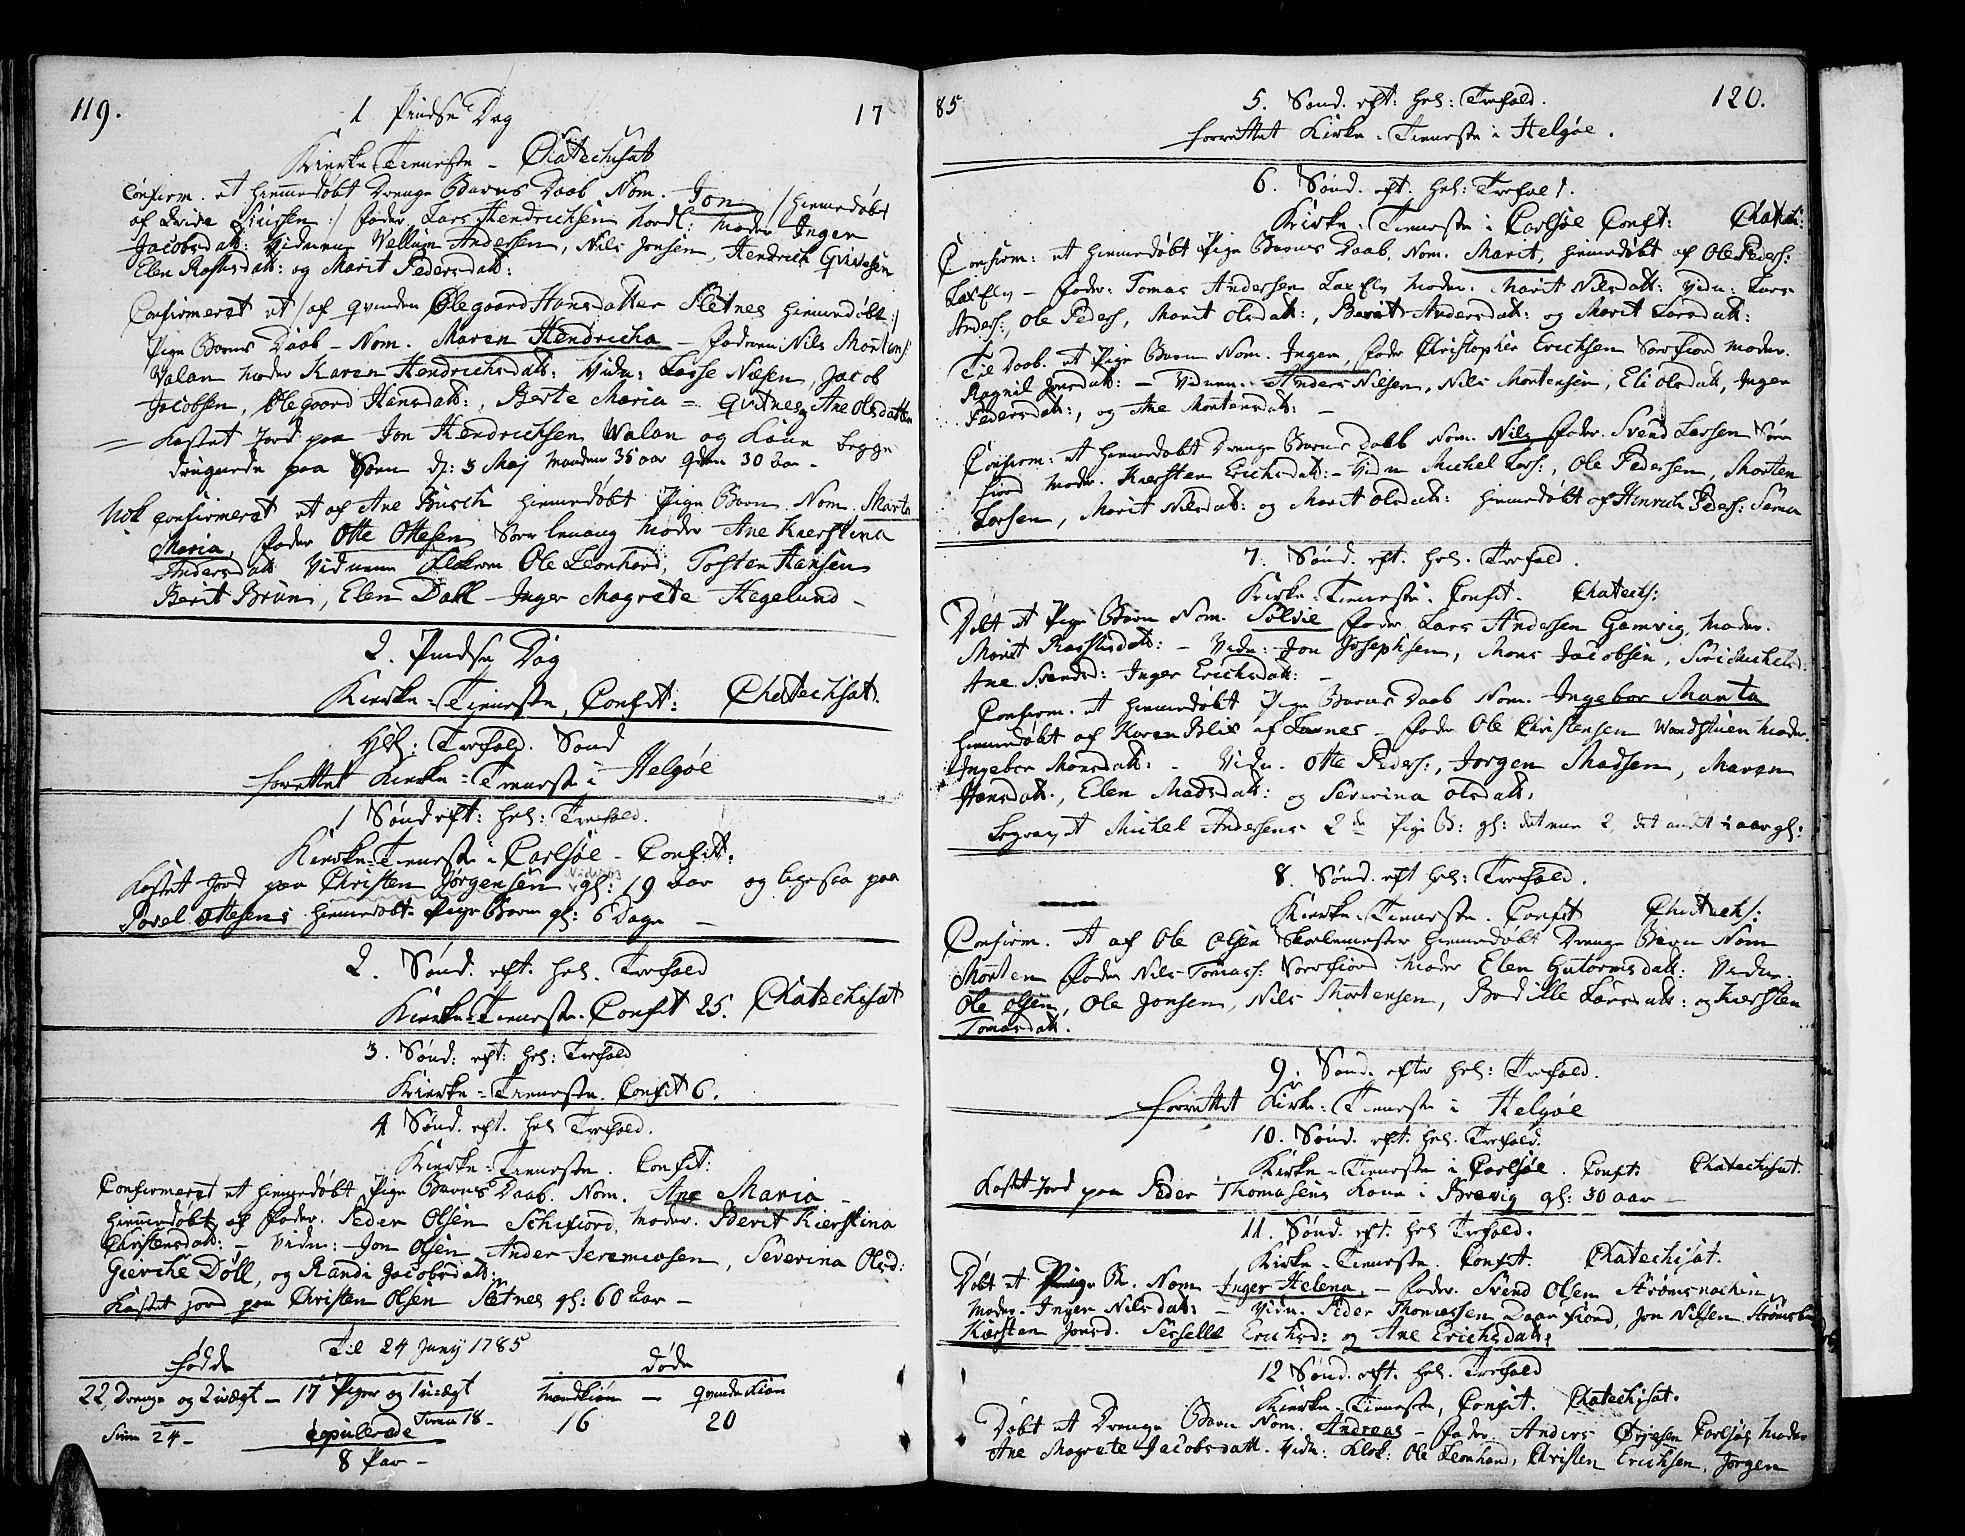 119.
1 Pindse Dag
17
Kirke-Tieneste - Chatechisat
Confirm. et hiemmedøbt Drenge Barns Daab Nom. Jon /: hiemmedøbt
af :/ fader Lars Hendrichsen Nordl: Moder Inger
Jacobsdatt: Vidnerne Vellum Andersen, Nils Jonsen, Hendrich
Elen Rasmsdatt: og Marit Pedersdatt:
Confirmeret et /: af qvinden Olegaard Hansdatter Sletnes hiemmedøbt :/
Pige Barns Daab - Nom. Maren Hendricha - faderen Nils Mortens:
Valan Moder Karen Hendrichsdatt: Vidn: Lasse Nilsen, Jacob
Jacobsen, Olegaard Hansdatt:, Berte Maria - Qvitnes, Ane Olsdatter
= Kastet Jord paa Jon Hendrichsen Walan og Kone begge
druknede paa Søen d: 3 Maj Manden 35 aar qvin 30 aar -
Nok confirmeret et af Ane Busch hiemmedøbt Pige Barn Nom. Marta
Maria, fader Otte Ottesen Sørlenang Moder Ane Kierstina
Andersdatt Vidnerne Ole Leonhard, Tosten Hansen
Berit Brun, Elen Dall - Inger Magrete Hegelund -
2. Pindse Dag
Kirke-Tieneste, Confit: Chatechisat.
Hel: Trefold. Sønd
forrettet Kirke-Tieneste i Helgøe
1 Sønd eft: hel: Trefold.
Kirke-Tieneste i Carlsøe - Confit:
Kastet Jord paa Christen Jørgensen gl: 19 aar og ligesaa paa
Povel Ottesens hiemmedøbt Pige Barn gl: 6 Dage -
2. Sønd. eft: hel. Trefold
Kirke-Tieneste. Confit 25. Chatechisat
3. Sønd: eft: hel: Trefold
Kirke-Tieneste. Confit 6.
4 Sønd. eft. hel Trefold.
Kirke-Tieneste. Confit:
Confirmeret et hiemmedøbt Pige Barns Daab. Nom. Ane Maria -
hiemmedøbt af fader. Peder Olsen Schifiord, moder. Berit Kierstina
Christensdatt: - Vidn: Jon Olsen, Ander Jeremiasen, Severina Olsd:
Gierche Döll, og Randi Jacobsdatt:
Kastet jord paa Christen Olsen Sletnes gl: 60 aar -
Til 24 Juny 1785
fødde døde
22 Drenge og 2 uægt - 17 Piger og 1 uægt Mandkiøn - Qvindekiøn
Sum 24 - Suma 18 - 16 20
Copulerede
8 Par -
85
120.
5. Sønd. eft: hel: Trefold.
forrettet Kirke-Tieneste i Helgøe.
6. Sønd. eft. hel: Trefold.
Kirke-Tieneste i Carlsøe Confit: Chatech:
Confirm: et hiemmedøbt Pige Barns Daab, Nom. Marit, hiemmedøbt af Ole Peders:
Laxelv - fader: Tomas Andersen Laxelv Moder: Marit Nilsdatt: Vidn: Lars
Anders:, Ole Peders, Marit Olsdatt:, Berit Andersdatt: og Marit Larsdatt:
Til Daab. et Pige Barn Nom. Inger, fader Christopher Erichsen Sørfiord moder.
Ragnil Jonsdatt: - Vidnerne. Anders Nilsen, Nils Mortensen, Eli Olsdatt, Inger
Pedersdatt:, og Ane Mortensdatt: -
Confirm: et hiemmedøbt Drenge Barns Daab Nom. Nils fader. Svend Larsen Sør-
fiord moder. Kiersten Erichsdatt: - Vidn Michel Lars:, Ole Pedersen, Morten
Larsen, Marit Nilsdatt: og Marit Olsdatt: hiemmedøbt af Henrich Peders:
7. Sønd. eft. hel. Trefold.
Kirke-Tieneste. Confit. Chatechs:
Døbt et Pige Barn Nom. Solvie fader. Lars Andersen Gamvig, moder.
Marit Rasmsdatt: - Vidn: Jon Josephsen, Mons Jacobsen, Siri Michelsd:
Ane Svendsd: Inger Erichsdatt: -
Confirm. et hiemmedøbt Pige Barns Daab Nom. Ingebor Marta
hiemmedøbt af Karen Blix af - fader Ole Christensen Wandstuen moder.
Ingebor Monsdatt: - Vidn. Otte Peders:, Jorgen Madsen, Maren
Hansdatt., Elen Madsdatt: og Severina Olsdatt:
Begravet Michel Andersens 2de Pige B: gl: det ene 2, det andet 1 aar gl:
8. Sønd. eft hel: Trefold.
Kirke-Tieneste. Confit Chatechs:
Confirm. et af Ole Olsen Skolemester hiemmedøbt Drenge Barn Nom
Morten fader Nils Tomass: Sørfiord moder Elen Gutormsdatt: Vidn.
Ole Olsen, Ole Jonsen, Nils Mortensen, Bodille Larsdatt: og Kiersten
Tomasdatt.
9. Sønd. efter hel: Trefold.
forrettet Kirke-Tieneste i Helgøe
10. Sønd. eft. hel. Trefold.
Kirke-Tieneste i Carlsøe. Confit: Chatechisat.
Kastet Jord paa Peder Thomasens Kone i Brevig gl: 30 aar -
11. Sønd. eft. hel Trefold.
Kirke-Tieneste. Confit. Chatechisat.
Døbt et Pige B. Nom Inger Helena, - fader. Svend Olsen
Moder. Inger Nilsdatt: - Vidn. Peder Thomassen Daafiord, Jon Nilsen
Kiersten Jonsd. Sesselle Erichsd: og Ane Erichsdatt:
12 Sønd. eft. hel Trefold
Kirke-Tieneste, Confit. Chatechisat.
Døbt et Drenge Barn Nom. Andreas - fader. Anders Carlsøe, Moder
Ane Magrete Jacobsdatt. Vidn: Klok: Ole Leonhard, Christen Erichsen, Jørgen